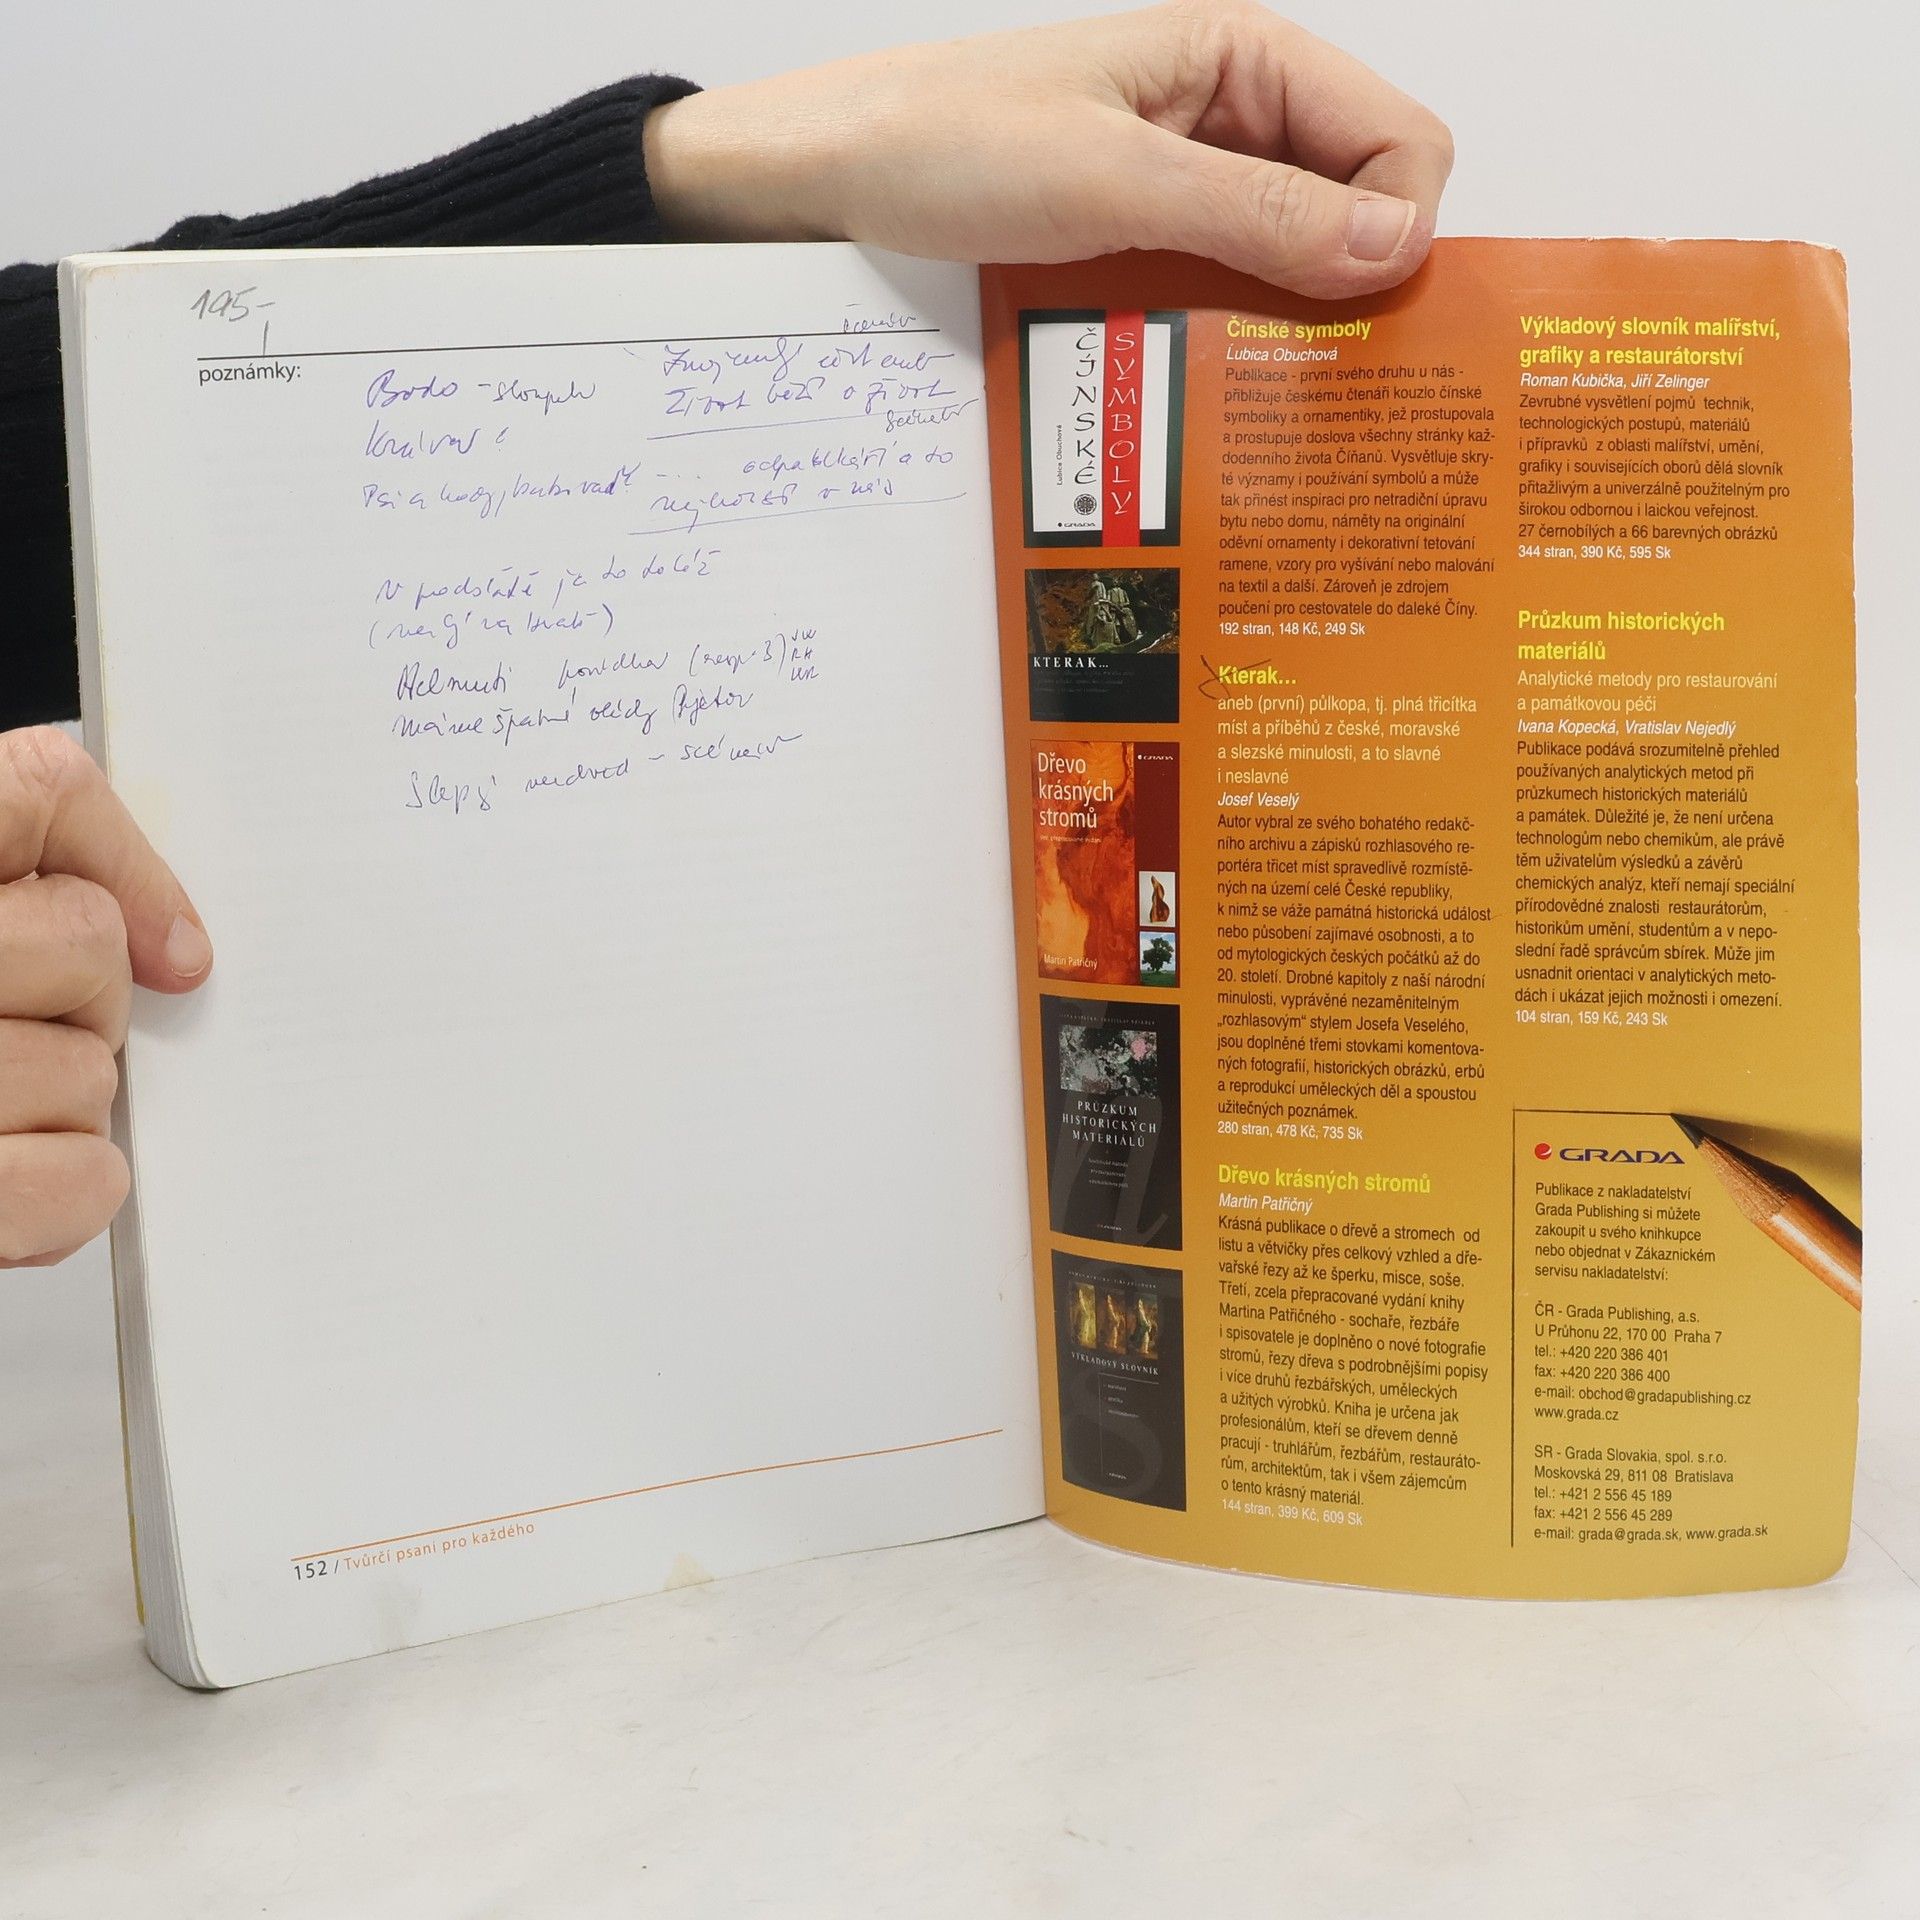 195-
poznámky:
Bodo - sloupek
V podstatě je to totéž
Slepý medvěd - scénář
152 / Tvůrčí psaní pro každého
ČÍNSKÉ
SYMBOLY
Ľubica Obuchová
GRADA
KTERAK...
Dřevo
krásných
stromů
GRADA
Martin Patřičný
PRŮZKUM
HISTORICKÝCH
MATERIÁLŮ
VÝKLADOVÝ SLOVNÍK
Čínské symboly
Ľubica Obuchová
Publikace - první svého druhu u nás -
přibližuje českému čtenáři kouzlo čínské
symboliky a ornamentiky, jež prostupovala
a prostupuje doslova všechny stránky kaž-
dodenního života Číňanů. Vysvětluje skry-
té významy i používání symbolů a může
tak přinést inspiraci pro netradiční úpravu
bytu nebo domu, náměty na originální
oděvní ornamenty i dekorativní tetování
ramene, vzory pro vyšívání nebo malování
na textil a další. Zároveň je zdrojem
poučení pro cestovatele do daleké Číny.
192 stran, 148 Kč, 249 Sk
Kterak...
aneb (první) půlkopa, tj. plná třicítka
míst a příběhů z české, moravské
a slezské minulosti, a to slavné
i neslavné
Josef Veselý
Autor vybral ze svého bohatého redakč-
ního archivu a zápisků rozhlasového re-
portéra třicet míst spravedlivě rozmístě-
ných na území celé České republiky,
k nimž se váže památná historická událost
nebo působení zajímavé osobnosti, a to
od mytologických českých počátků až do
20. století. Drobné kapitoly z naší národní
minulosti, vyprávěné nezaměnitelným
„rozhlasovým“ stylem Josefa Veselého,
jsou doplněné třemi stovkami komentova-
ných fotografií, historických obrázků, erbů
a reprodukcí uměleckých děl a spoustou
užitečných poznámek.
280 stran, 478 Kč, 735 Sk
Dřevo krásných stromů
Martin Patřičný
Krásná publikace o dřevě a stromech od
listu a větvičky přes celkový vzhled a dře-
vařské řezy až ke šperku, misce, soše.
Třetí, zcela přepracované vydání knihy
Martina Patřičného - sochaře, řezbáře
i spisovatele je doplněno o nové fotografie
stromů, řezy dřeva s podrobnějšími popisy
i více druhů řezbářských, uměleckých
a užitých výrobků. Kniha je určena jak
profesionálům, kteří se dřevem denně
pracují - truhlářům, řezbářům, restauráto-
rům, architektům, tak i všem zájemcům
o tento krásný materiál.
144 stran, 399 Kč, 609 Sk
Výkladový slovník malířství,
grafiky a restaurátorství
Roman Kubička, Jiří Zelinger
Zevrubné vysvětlení pojmů technik,
technologických postupů, materiálů
i přípravků z oblasti malířství, umění,
grafiky i souvisejících oborů dělá slovník
přitažlivým a univerzálně použitelným pro
širokou odbornou i laickou veřejnost.
27 černobílých a 66 barevných obrázků
344 stran, 390 Kč, 595 Sk
Průzkum historických
materiálů
Analytické metody pro restaurování
a památkovou péči
Ivana Kopecká, Vratislav Nejedlý
Publikace podává srozumitelně přehled
používaných analytických metod při
průzkumech historických materiálů
a památek. Důležité je, že není určena
technologům nebo chemikům, ale právě
těm uživatelům výsledků a závěrů
chemických analýz, kteří nemají speciální
přírodovědné znalosti restaurátorům,
historikům umění, studentům a v nepo-
slední řadě správcům sbírek. Může jim
usnadnit orientaci v analytických meto-
dách i ukázat jejich možnosti i omezení.
104 stran, 159 Kč, 243 Sk
GRADA
Publikace z nakladatelství
Grada Publishing si můžete
zakoupit u svého knihkupce
nebo objednat v Zákaznickém
servisu nakladatelství:
ČR - Grada Publishing, a.s.
U Průhonu 22, 170 00 Praha 7
tel.: +420 220 386 401
fax: +420 220 386 400
e-mail: obchod@gradapublishing.cz
www.grada.cz
SR - Grada Slovakia, spol. s.r.o.
Moskovská 29, 811 08 Bratislava
tel.: +421 2 556 45 189
fax: +421 2 556 45 289
e-mail: grada@grada.sk, www.grada.sk